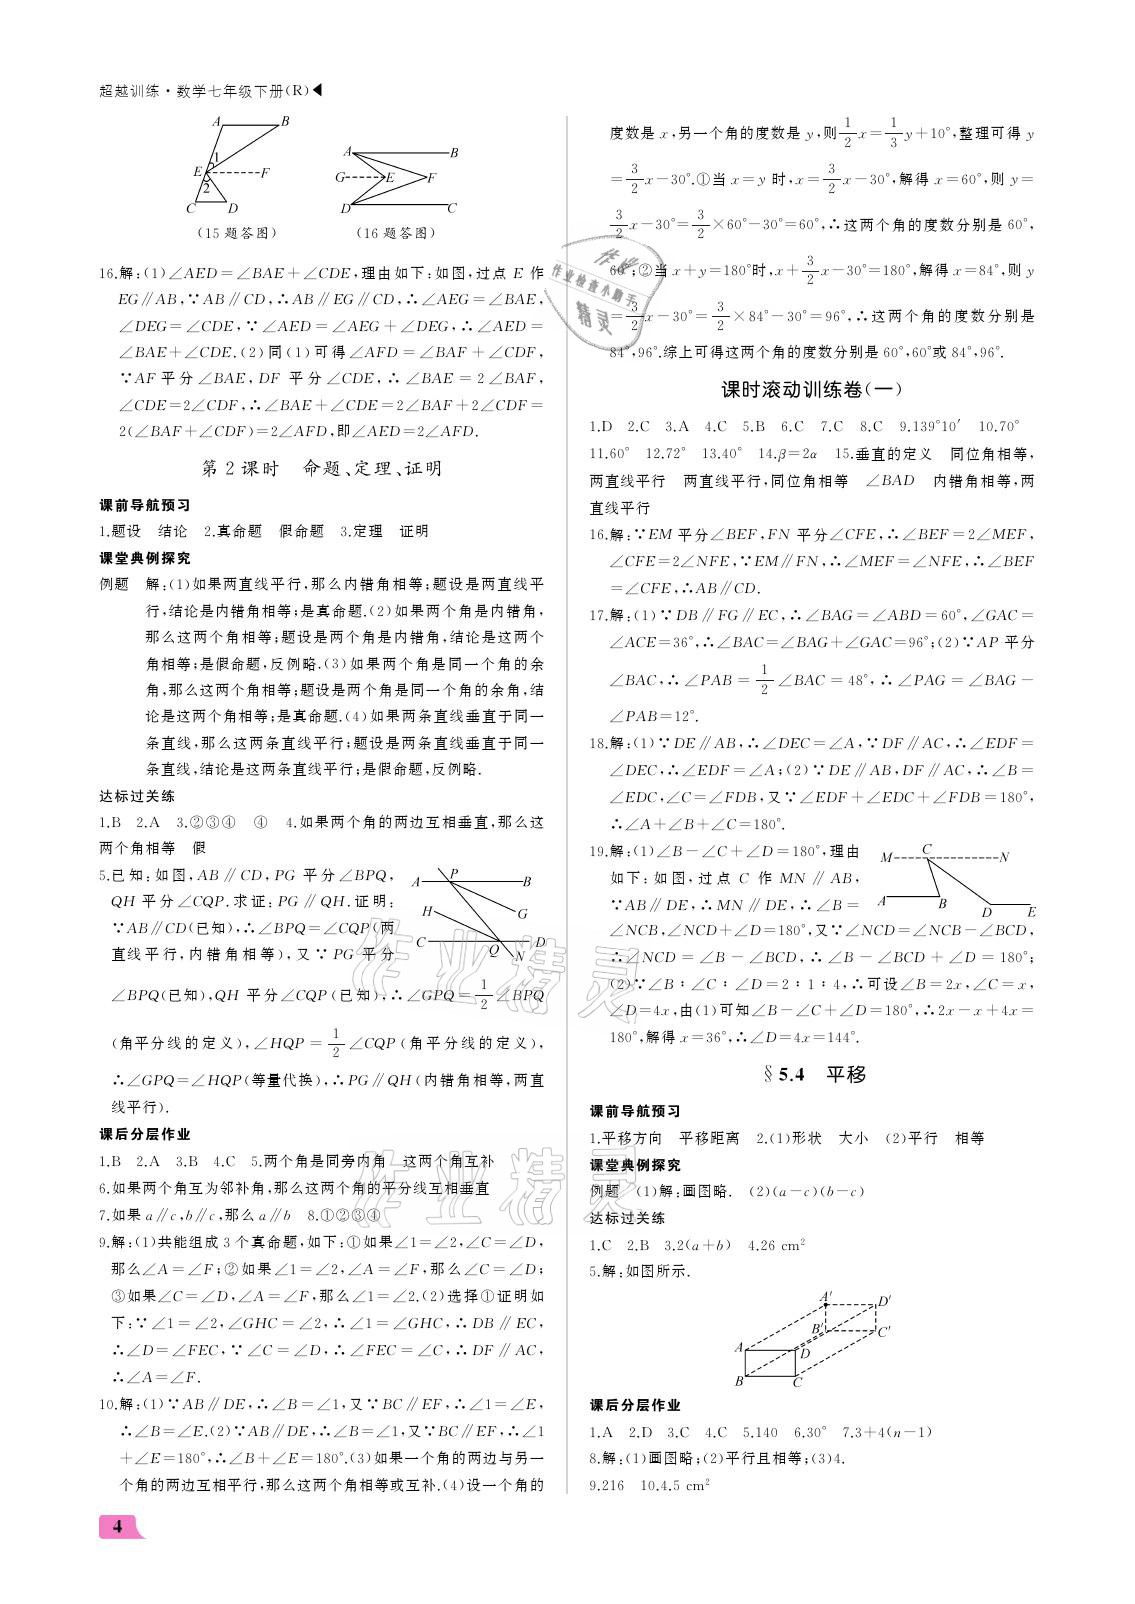 超越训练·数学七年级下册(R)◀
A B
1
E F
2
C D
(15题答图)
A B
G E F
D C
(16题答图)
16.解:(1)∠AED=∠BAE+∠CDE,理由如下:如图,过点 E 作
EG∥AB,∵AB∥CD,∴AB∥EG∥CD,∴∠AEG=∠BAE,
∠DEG=∠CDE,∵∠AED=∠AEG+∠DEG,∴∠AED=
∠BAE+∠CDE.(2)同(1)可得∠AFD=∠BAF+∠CDF,
∵AF平分∠BAE,DF 平分∠CDE,∴∠BAE=2∠BAF,
∠CDE=2∠CDF,∴∠BAE+∠CDE=2∠BAF+2∠CDF=
2(∠BAF+∠CDF)=2∠AFD,即∠AED=2∠AFD.
第 2 课时 命题、定理、证明
课前导航预习
1.题设 结论 2.真命题 假命题 3.定理 证明
课堂典例探究
例题 解:(1)如果两直线平行,那么内错角相等;题设是两直线平
行,结论是内错角相等;是真命题.(2)如果两个角是内错角,
那么这两个角相等;题设是两个角是内错角,结论是这两个
角相等;是假命题,反例略.(3)如果两个角是同一个角的余
角,那么这两个角相等;题设是两个角是同一个角的余角,结
论是这两个角相等;是真命题.(4)如果两条直线垂直于同一
条直线,那么这两条直线平行;题设是两条直线垂直于同一
条直线,结论是这两条直线平行;是假命题,反例略.
达标过关练
1.B 2.A 3.②③④ ④ 4.如果两个角的两边互相垂直,那么这
两个角相等 假
5.已知:如图,AB∥CD,PG 平分∠BPQ,
QH 平分∠CQP.求证:PG∥QH.证明:
∵AB∥CD(已知),∴∠BPQ=∠CQP(两
直线平行,内错角相等),又∵PG 平分
A P B
H G
C Q D
N
∠BPQ(已知),QH 平分∠CQP(已知),∴∠GPQ=1/2∠BPQ
(角平分线的定义),∠HQP=1/2∠CQP(角平分线的定义),
∴∠GPQ=∠HQP(等量代换),∴PG∥QH(内错角相等,两直
线平行).
课后分层作业
1.B 2.A 3.B 4.C 5.两个角是同旁内角 这两个角互补
6.如果两个角互为邻补角,那么这两个角的平分线互相垂直
7.如果a∥c,b∥c,那么a∥b 8.①②③④
9.解:(1)共能组成3个真命题,如下:①如果∠1=∠2,∠C=∠D,
那么∠A=∠F;②如果∠1=∠2,∠A=∠F,那么∠C=∠D;
③如果∠C=∠D,∠A=∠F,那么∠1=∠2.(2)选择①证明如
下:∵∠1=∠2,∠GHC=∠2,∴∠1=∠GHC,∴DB∥EC,
∴∠D=∠FEC,∵∠C=∠D,∴∠FEC=∠C,∴DF∥AC,
∴∠A=∠F.
10.解:(1)∵AB∥DE,∴∠B=∠1,又∵BC∥EF,∴∠1=∠E,
∴∠B=∠E.(2)∵AB∥DE,∴∠B=∠1,又∵BC∥EF,∴∠1
+∠E=180°,∴∠B+∠E=180°.(3)如果一个角的两边与另一
个角的两边互相平行,那么这两个角相等或互补.(4)设一个角的
度数是x,另一个角的度数是y,则1/2x=1/3y+10°,整理可得y
=3/2x-30°.①当x=y时,x=3/2x-30°,解得x=60°,则y=
3/2x-30°=3/2×60°-30°=60°,∴这两个角的度数分别是60°,
60°;②当x+y=180°时,x+3/2x-30°=180°,解得x=84°,则y
=3/2x-30°=3/2×84°-30°=96°,∴这两个角的度数分别是
84°,96°.综上可得这两个角的度数分别是60°,60°或84°,96°.
课时滚动训练卷(一)
1.D 2.C 3.A 4.C 5.B 6.C 7.C 8.C 9.139°10′ 10.70°
11.60° 12.72° 13.40° 14.β=2α 15.垂直的定义 同位角相等,
两直线平行 两直线平行,同位角相等 ∠BAD 内错角相等,两
直线平行
16.解:∵EM平分∠BEF,FN 平分∠CFE,∴∠BEF=2∠MEF,
∠CFE=2∠NFE,∵EM∥FN,∴∠MEF=∠NFE,∴∠BEF
=∠CFE,∴AB∥CD.
17.解:(1)∵DB∥FG∥EC,∴∠BAG=∠ABD=60°,∠GAC=
∠ACE=36°,∴∠BAC=∠BAG+∠GAC=96°;(2)∵AP平分
∠BAC,∴∠PAB=1/2∠BAC=48°,∴∠PAG=∠BAG-
∠PAB=12°.
18.解:(1)∵DE∥AB,∴∠DEC=∠A,∵DF∥AC,∴∠EDF=
∠DEC,∴∠EDF=∠A;(2)∵DE∥AB,DF∥AC,∴∠B=
∠EDC,∠C=∠FDB,又∵∠EDF+∠EDC+∠FDB=180°,
∴∠A+∠B+∠C=180°.
19.解:(1)∠B-∠C+∠D=180°,理由
如下:如图,过点 C 作 MN∥AB,
∵AB∥DE,∴MN∥DE,∴∠B=
M C N
A B D E
∠NCB,∠NCD+∠D=180°,又∵∠NCD=∠NCB-∠BCD,
∴∠NCD=∠B-∠BCD,∴∠B-∠BCD+∠D=180°;
(2)∵∠B∶∠C∶∠D=2∶1∶4,∴可设∠B=2x,∠C=x,
∠D=4x,由(1)可知∠B-∠C+∠D=180°,∴2x-x+4x=
180°,解得x=36°,∴∠D=4x=144°.
§5.4 平移
课前导航预习
1.平移方向 平移距离 2.(1)形状 大小 (2)平行 相等
课堂典例探究
例题 (1)解:画图略. (2)(a-c)(b-c)
达标过关练
1.C 2.B 3.2(a+b) 4.26 cm²
5.解:如图所示.
A′ D′
B′ C′
A D
B C
课后分层作业
1.A 2.D 3.C 4.C 5.140 6.30° 7.3+4(n-1)
8.解:(1)画图略;(2)平行且相等;(3)4.
9.216 10.4.5 cm²
4
作业
作业检查小助手
精灵
作业精灵
作业精灵